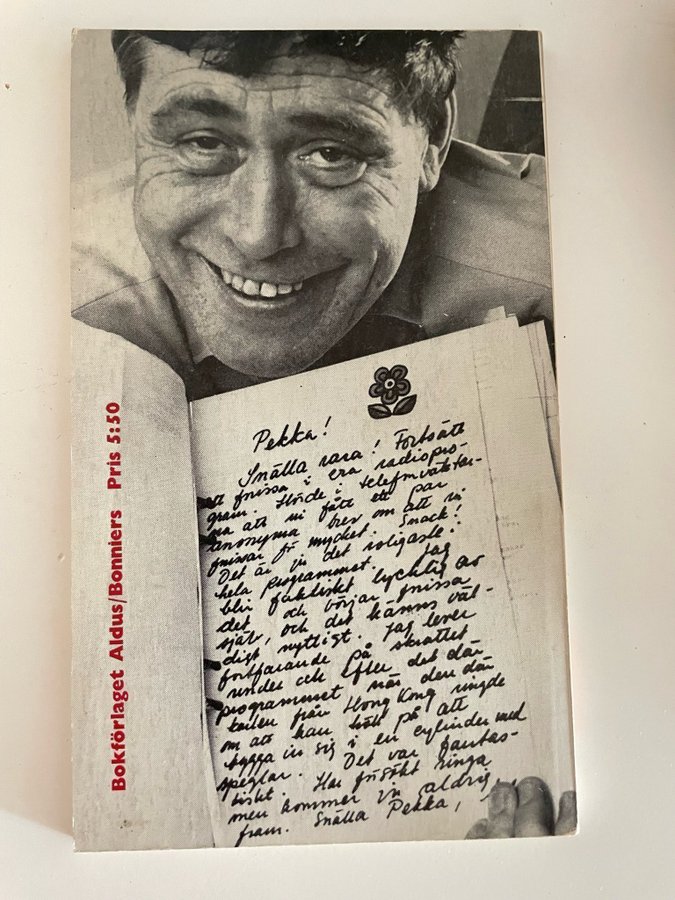 Bokförlaget Aldus/Bonniers Pris 5:50
Pekka!
Snälla rara! Fortsätt
att fnissa i era radiopro-
gram. Hörde i telefonväktar-
na att ni fått ett par
anonyma brev om att ni
fnissar för mycket. Snack!
Det är ju det roligaste i
hela programmet. Jag
blir faktiskt lycklig av
det och börjar fnissa
själv, och det känns väl-
digt nyttigt. Jag lever
fortfarande på skrattet
under och efter det där
programmet när den där
killen från Hong Kong ringde
om att han höll på att
bygga in sig i en cylinder med
speglar. Det var fantas-
tiskt. Har försökt ringa
men kommer ju aldrig
fram. Snälla Pekka,